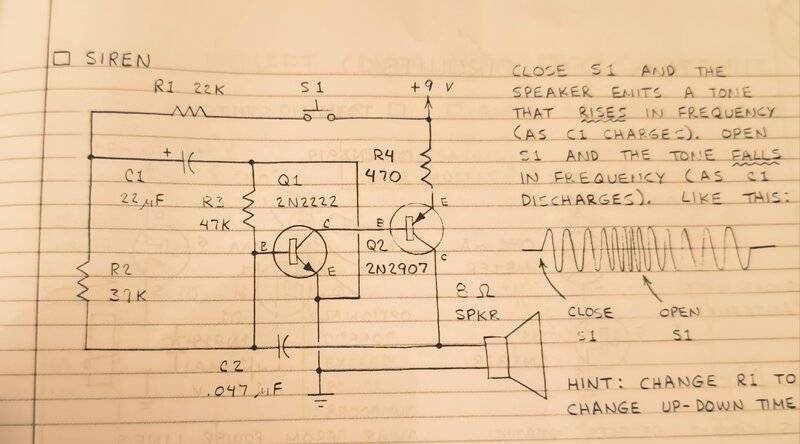 □ SIREN
R1 22K
S1
+9 V
+
C1
22µF
R3
47K
Q1
2N2222
C
B
E
R4
470
E
B
C
Q2
2N2907
R2
39K
8 Ω
SPKR
C2
.047µF
CLOSE S1 AND THE
SPEAKER EMITS A TONE
THAT RISES IN FREQUENCY
(AS C1 CHARGES). OPEN
S1 AND THE TONE FALLS
IN FREQUENCY (AS C1
DISCHARGES). LIKE THIS:
CLOSE
S1
OPEN
S1
HINT: CHANGE R1 TO
CHANGE UP-DOWN TIME